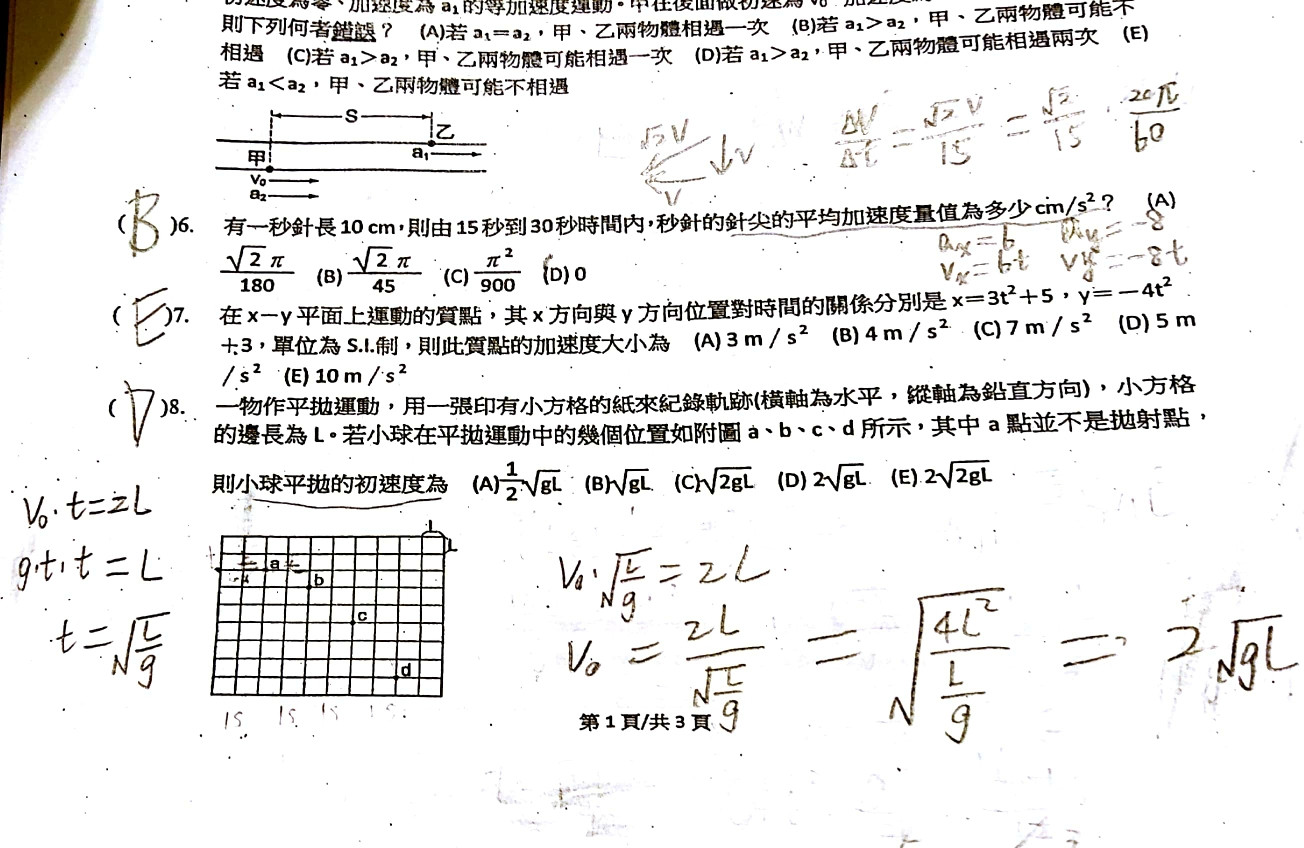 初速度為零、加速度為 a₁ 的等加速度運動。甲在後面做初速為 v₀
則下列何者錯誤? (A)若 a₁=a₂,甲、乙兩物體相遇一次 (B)若 a₁>a₂,甲、乙兩物體可能不
相遇 (C)若 a₁>a₂,甲、乙兩物體可能相遇一次 (D)若 a₁>a₂,甲、乙兩物體可能相遇兩次 (E)
若 a₁<a₂,甲、乙兩物體可能不相遇
S
乙
a₁
甲
v₀
a₂
√2V
V
V
ΔV/Δt = √2V/15 = √2/15 · 20π/60
(B)6. 有一秒針長 10 cm,則由 15 秒到 30 秒時間內,秒針的針尖的平均加速度量值為多少 cm/s²? (A)
√2π/180 (B) √2π/45 (C) π²/900 (D) 0
ax=6 ay=-8
Vx=6t Vy=-8t
(E)7. 在 x-y 平面上運動的質點,其 x 方向與 y 方向位置對時間的關係分別是 x=3t²+5,y=-4t²
+3,單位為 S.I.制,則此質點的加速度大小為 (A) 3 m/s² (B) 4 m/s² (C) 7 m/s² (D) 5 m
/s² (E) 10 m/s²
(D)8. 一物作平拋運動,用一張印有小方格的紙來紀錄軌跡(橫軸為水平,縱軸為鉛直方向),小方格
的邊長為 L。若小球在平拋運動中的幾個位置如附圖 a、b、c、d 所示,其中 a 點並不是拋射點,
則小球平拋的初速度為 (A) 1/2 √gL (B) √gL (C) √2gL (D) 2√gL (E) 2√2gL
V₀·t=2L
g·t·t=L
t=√(L/g)
L
L
a
b
c
d
1s 1s 1s 1s
V₀·√(L/g)=2L
V₀ = 2L/√(L/g) = √(4L²/(L/g)) = 2√gL
第 1 頁/共 3 頁